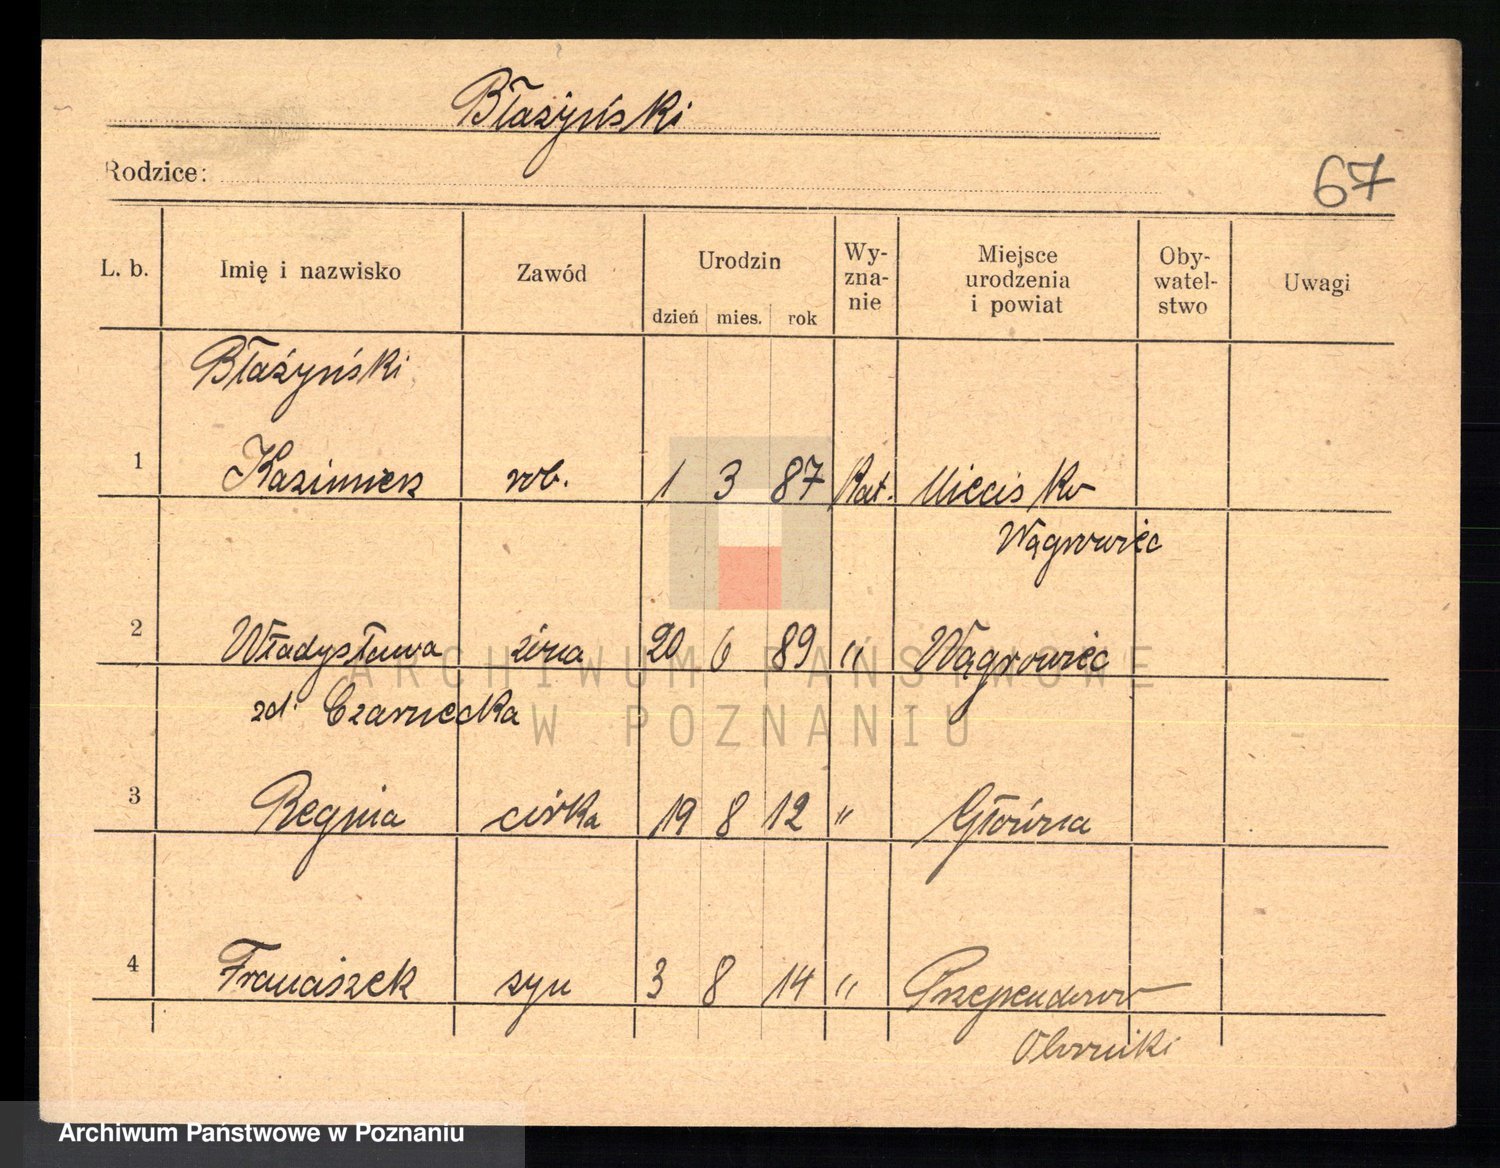 Błażyński
Rodzice:
67
L. b. Imię i nazwisko Zawód Urodzin dzień mies. rok Wy-zna-nie Miejsce urodzenia i powiat Oby-watel-stwo Uwagi
Błażyński
1 Kazimierz rob. 1 3 87 Kat. Mieścisko
Wągrowiec
2 Władysława żona 20 6 89 " Wągrowiec
zd. Czarnecka
3 Regina córka 19 8 12 " Główna
4 Franciszek syn 3 8 14 "
Oborniki
ARCHIWUM PAŃSTWOWE
W POZNANIU
Archiwum Państwowe w Poznaniu